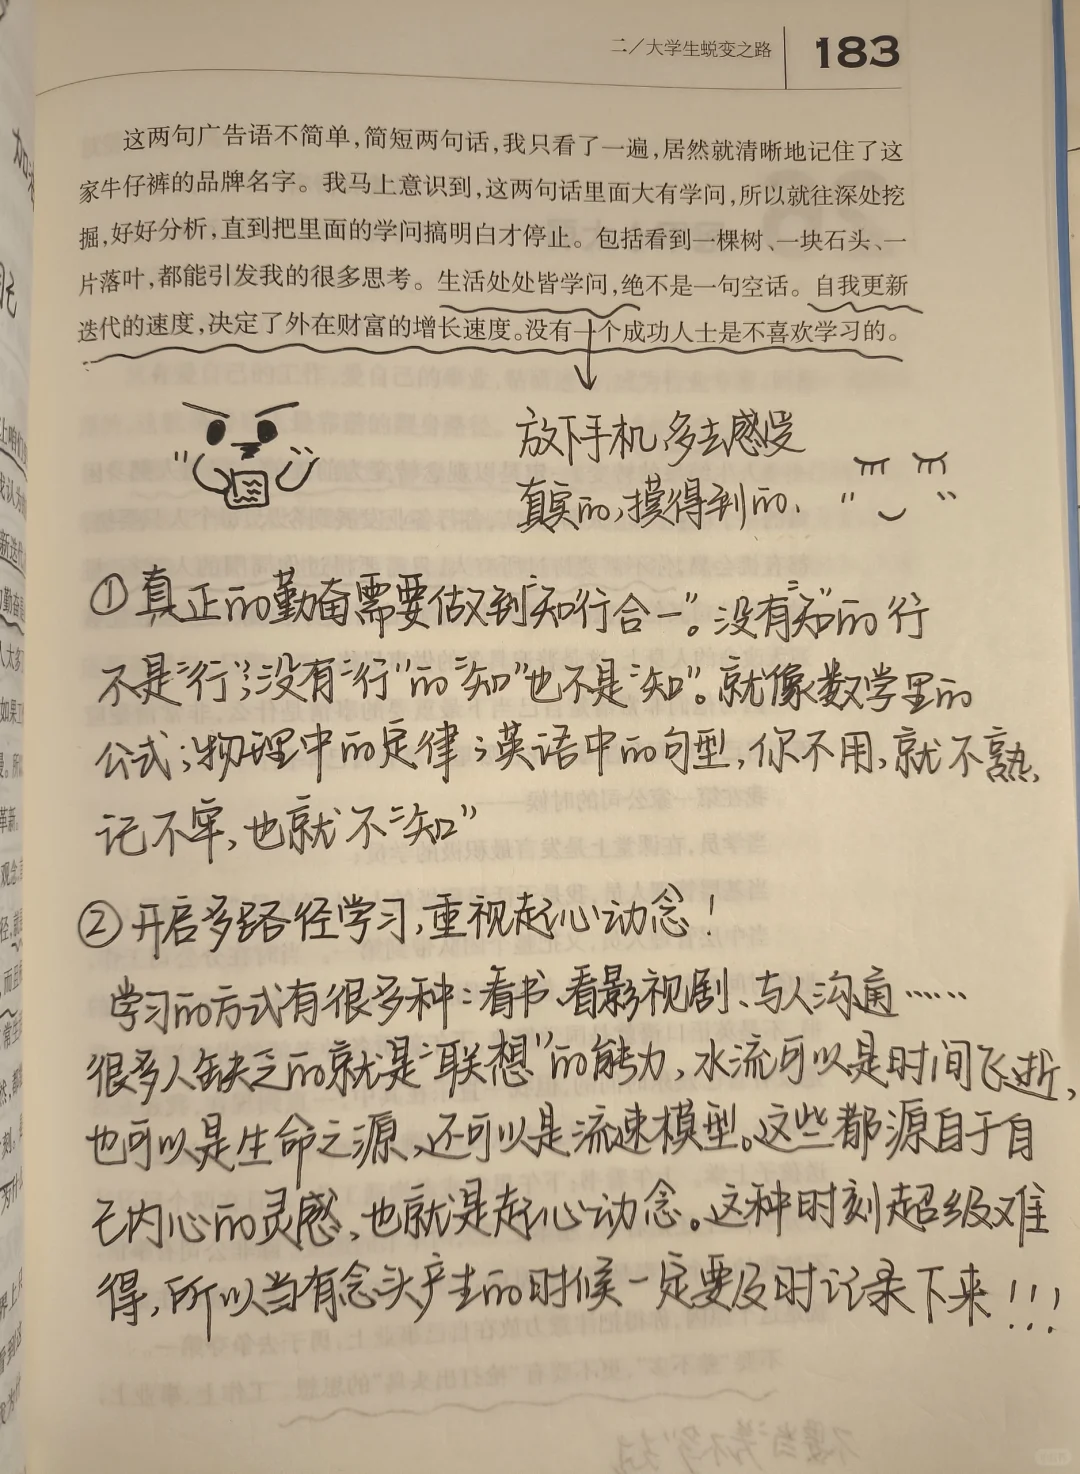 二/大学生蜕变之路 183
这两句广告语不简单,简短两句话,我只看了一遍,居然就清晰地记住了这
家牛仔裤的品牌名字。我马上意识到,这两句话里面大有学问,所以就往深处挖
掘,好好分析,直到把里面的学问搞明白才停止。包括看到一棵树、一块石头、一
片落叶,都能引发我的很多思考。生活处处皆学问,绝不是一句空话。自我更新
迭代的速度,决定了外在财富的增长速度。没有一个成功人士是不喜欢学习的。
放下手机,多去感受
真实的,摸得到的.
①真正的勤奋需要做到“知行合一”。没有“知”的行
不是“行”;没有“行”的“知”也不是“知”。就像数学里的
公式;物理中的定律;英语中的句型,你不用,就不熟,
记不牢,也就不“知”
②开启多路径学习,重视起心动念!
学习的方式有很多种:看书、看影视剧、与人沟通……
很多人缺乏的就是“联想”的能力,水流可以是时间飞逝,
也可以是生命之源,还可以是流速模型。这些都源自于自
己内心的灵感,也就是起心动念。这种时刻超级难
得,所以当有念头产生的时候一定要及时记录下来!!!